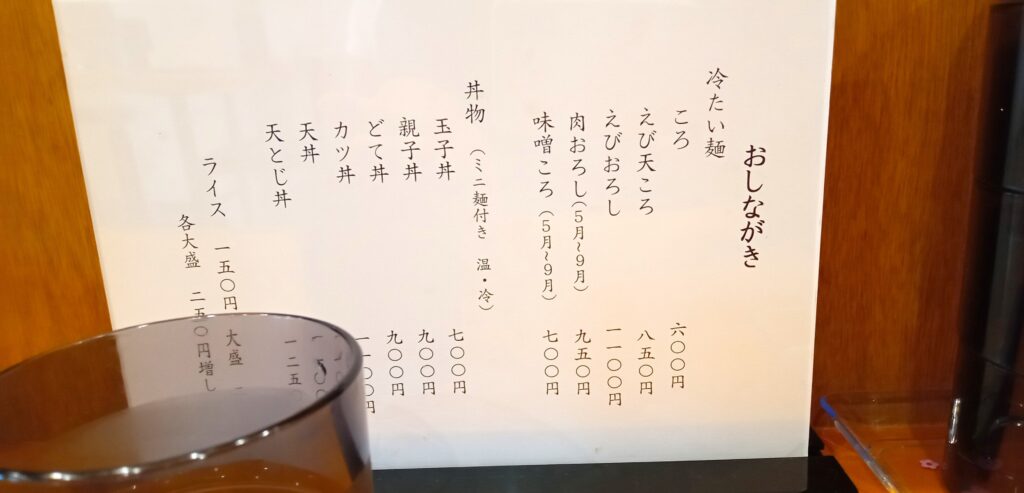 おしながき
冷たい麺
ころ 六〇〇円
えび天ころ 八五〇円
えびおろし 一一〇〇円
肉おろし（5月〜9月） 九五〇円
味噌ころ（5月〜9月） 七〇〇円
丼物（ミニ麺付き 温・冷）
玉子丼 七〇〇円
親子丼 九〇〇円
どて丼 九〇〇円
カツ丼 一一〇〇円
天丼
天とじ丼
ライス 一五〇円 大盛
各大盛 二五〇円増し